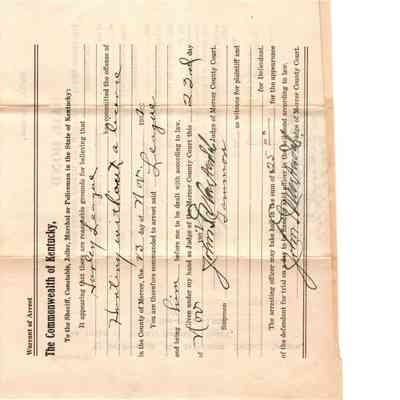 Warrant of Arrest
The Commonwealth of Kentucky,
To the Sheriff, Constable, Jailer, Marshal or Policeman in the State of Kentucky:
It appearing that there are reasonable grounds for believing that
Hurley League
has committed the offense of
Hunting without a license
in the County of Mercer, the 23 day of Nov. 192
You are therefore commanded to arrest said League
and bring him before me to be dealt with according to law.
Given under my hand as Judge of the Mercer County Court this 23rd day
of Nov 192
Judge of Mercer County Court.
Summon as witness for plaintiff and
for Defendant.
The arresting officer may take bail in the sum of $25 for the appearance
of the defendant for trial on a day to be fixed by the officer in the bond according to law.
Judge of Mercer County Court.